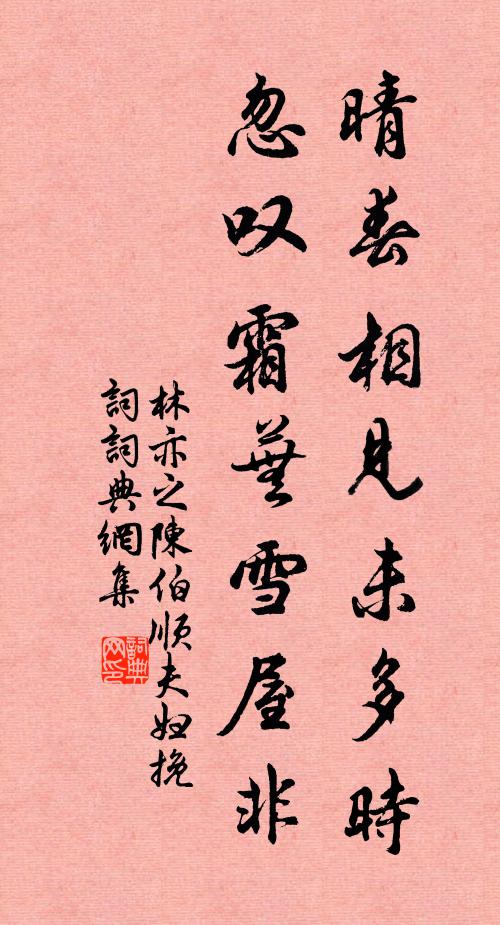 晴春相見未多時
忽叹霜蕪雪屋非
林亦之陳伯順夫妇挽
詞詞典網集
詞典
网印